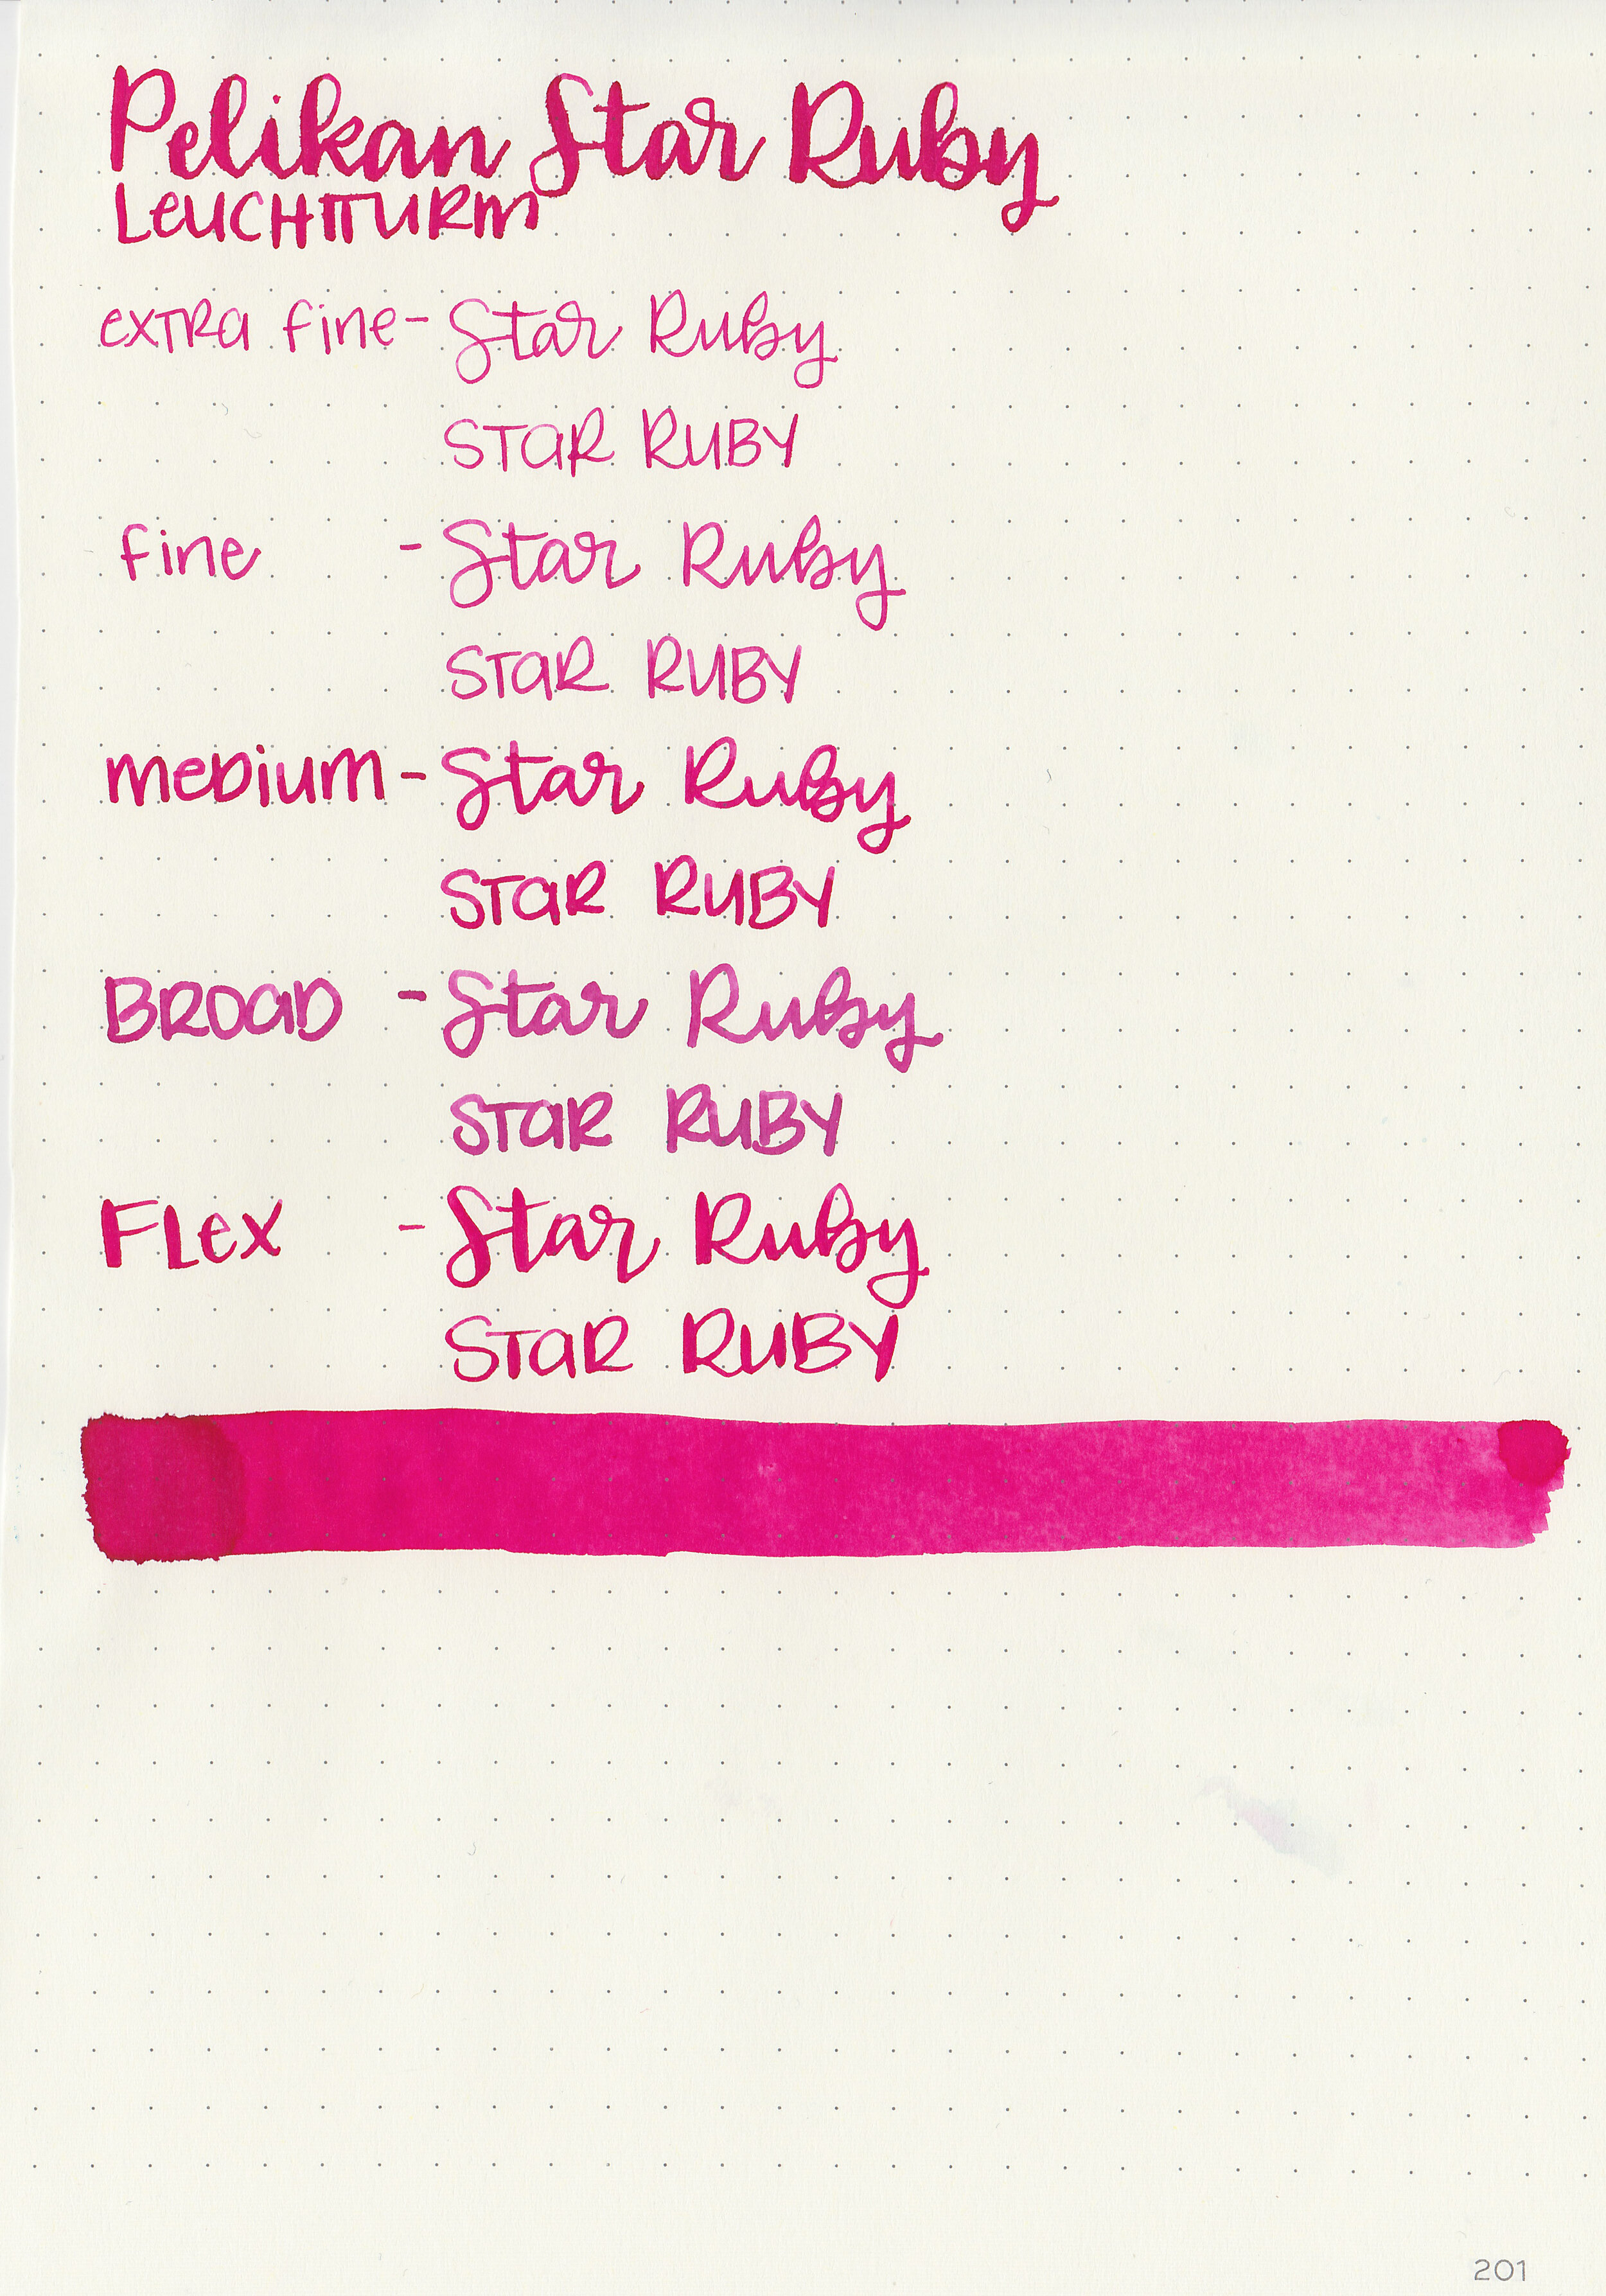 Pelikan Star Ruby
LeUCHTTURm
exTRa fine - Star Ruby
STaR RUBY
fine - Star Ruby
STaR RUBY
meDium - Star Ruby
STaR RUBY
BROaD - Star Ruby
STaR RUBY
FLex - Star Ruby
STaR RUBY
201